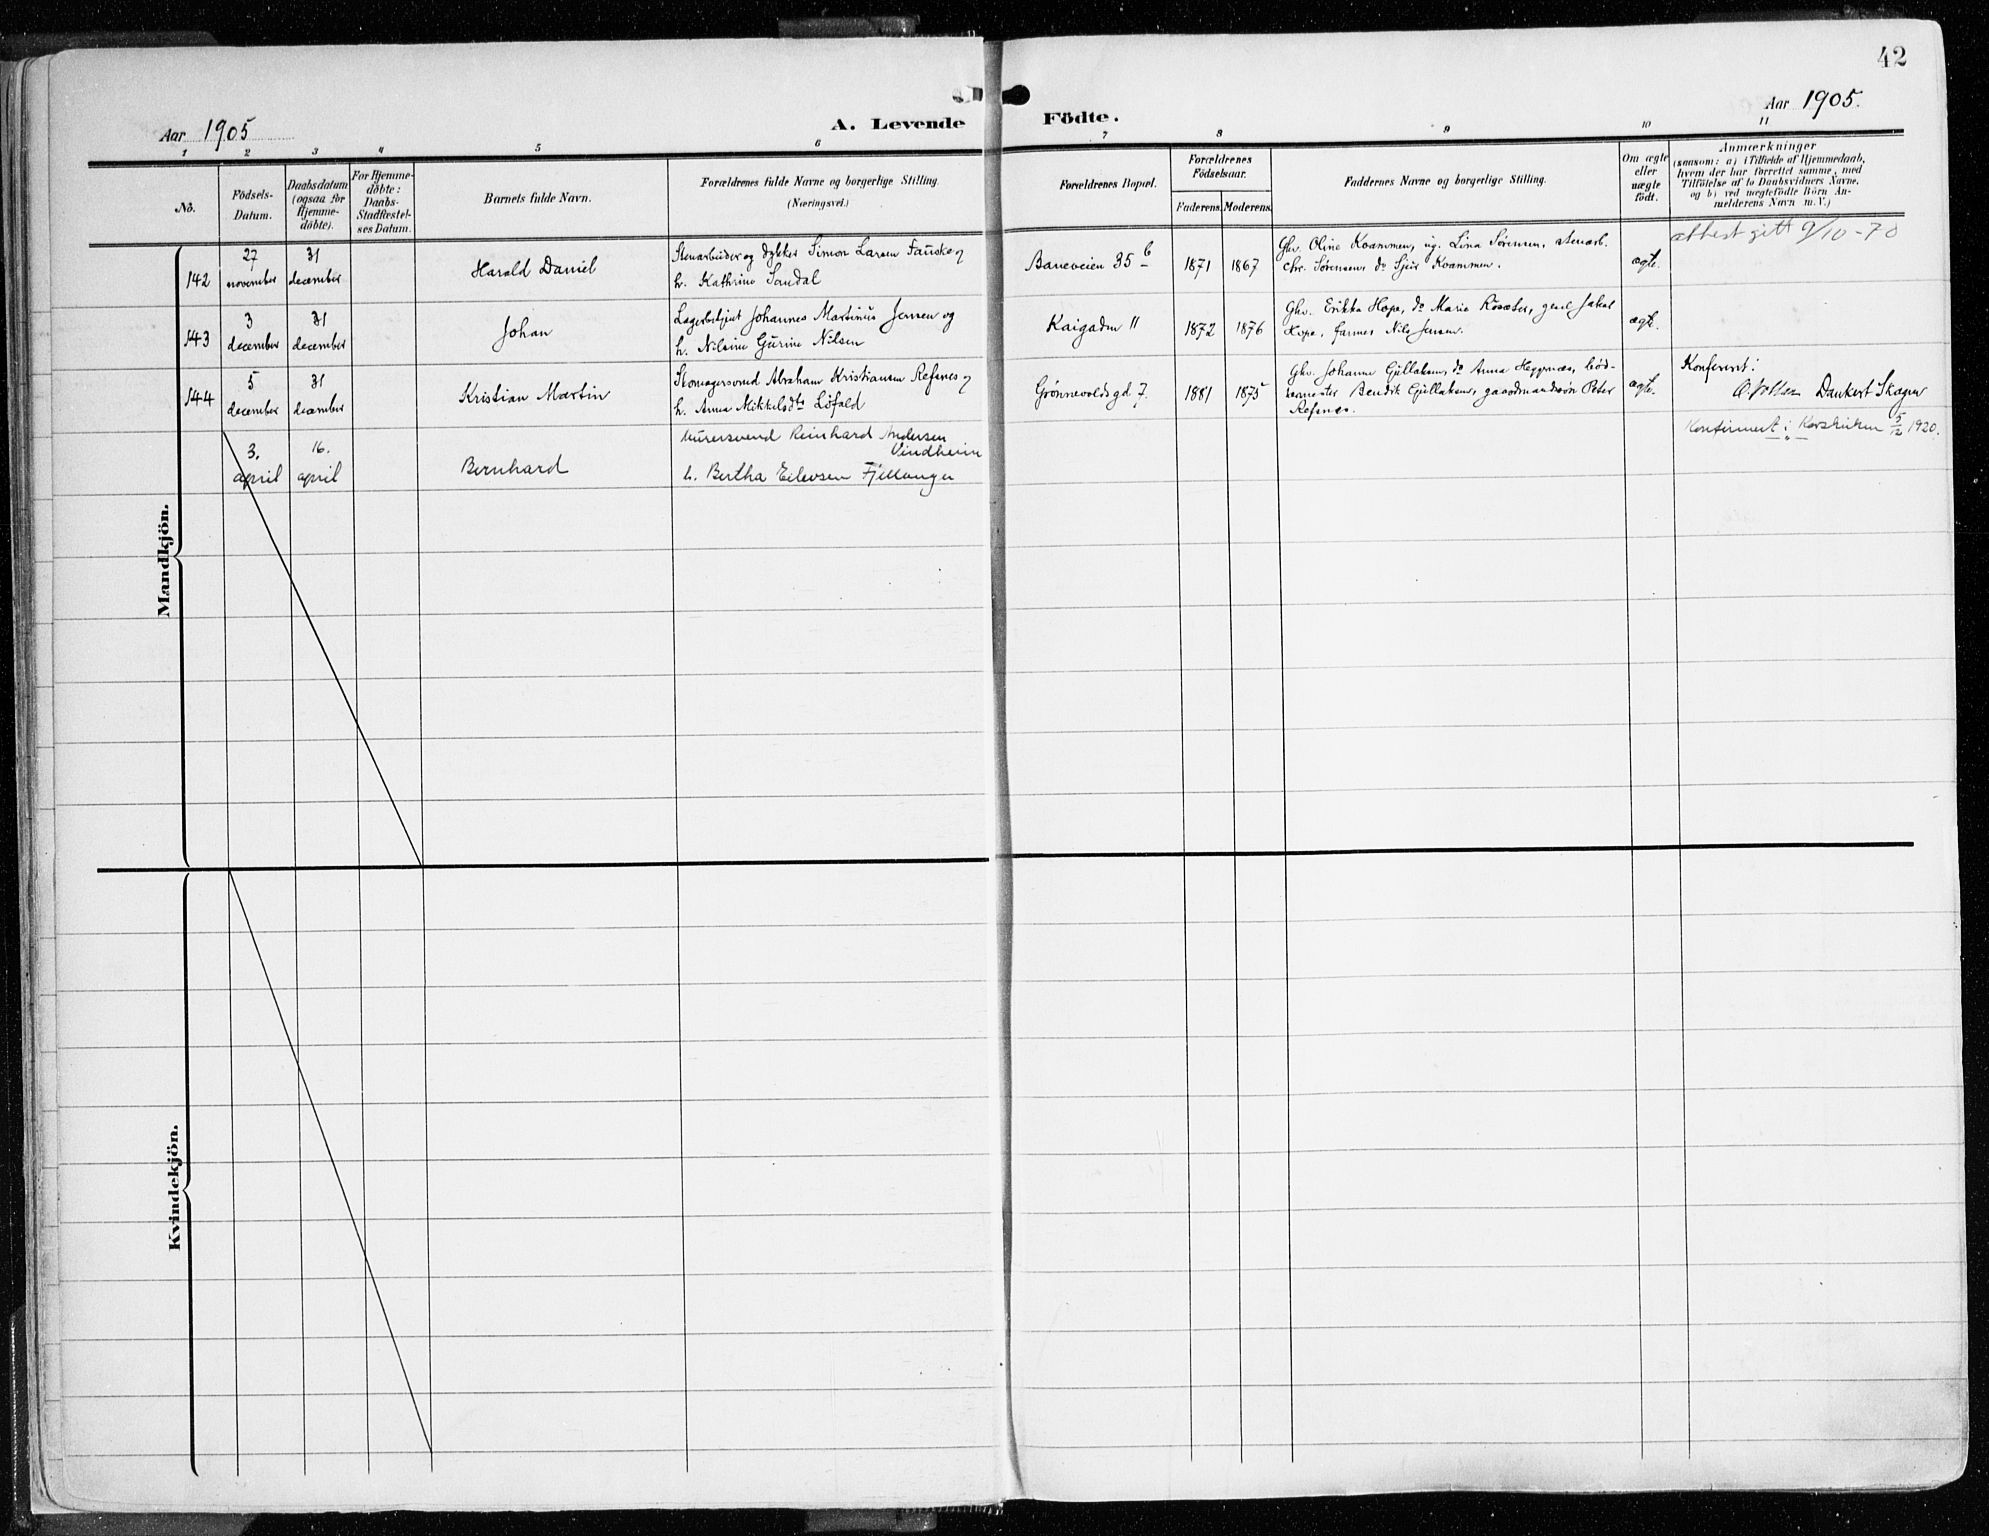 42
Aar 1905
A. Levende Födte.
Aar 1905.
1 2 3 4 5 6 7 8 9 10 11
No.
Födsels-
Datum.
Daabsdatum
(ogsaa for
Hjemme-
döbte).
For Hjemme-
döbte:
Daabs-
Stadfæstel-
ses Datum.
Barnets fulde Navn.
Forældrenes fulde Navne og borgerlige Stilling.
(Næringsvei.)
Forældrenes Bopæl.
Forældrenes
Födselsaar.
Faderens. Moderens.
Faddernes Navne og borgerlige Stilling.
Om ægte
eller
uægte
födt.
Anmærkninger
(saasom: a) i Tilfælde af Hjemmedaab,
hvem der har forrettet samme, med
Tilföielse af to Daabsvidners Navne,
og b) ved uægtefödte Börn An-
melderens Navn m. V.)
Mandkjön.
142
27
november
31
december
Harald Daniel
Stenarbeider og dykker Simon Larsen Fauske og
h. Kathrine Sandal
Baneveien 35 b
1871 1867
Ghv. Oline Kvammen, ug. Lina Sørensen, stenarb.
Chr. Sørensen, do Sjur Kvammen.
ægte.
attest gitt 9/10-70
143
3
december
31
december
Johan
Lagerbetjent Johannes Martinus Jensen og
h. Nilsine Gurine Nilsen
Kaigaden 11
1872 1876
Ghv. Erikka Hope, do Marie Rosæter, Jakob
Hope, Nils Jensen.
ægte.
144
5
december
31
december
Kristian Martin
Skomagersvend Abraham Kristiansen Refsnes og
h. Anna Mikkelsdtr Löfald
Grønnevoldsgd 7.
1881 1875
Ghv. Johanne Gjullaksen, do Anna Heggenæs, bød-
kermester Bendik Gjullaksen, gaardmandssøn Peter
Refsnes.
ægte.
Konferent:
Dankert Skagen
3.
april
16.
april
Bernhard
Murersvend Reinhard Andersen
Vindheim
h. Bertha Eilevsen Fjellanger
Konfirmert i Korskirken 5/12 1920.
Kvindekjön.